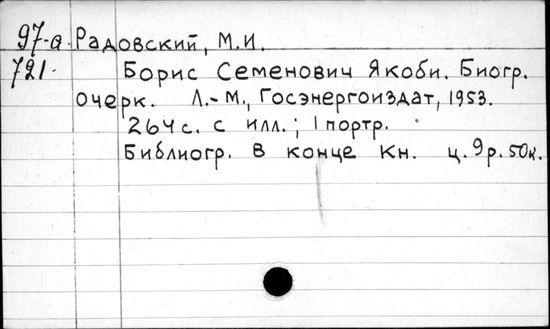 97-а. Радовский, М.И.
721. Борис Семенович Якоби. Биогр.
очерк. Л.-М., Госэнергоиздат, 1953.
264с. с илл.; 1 портр.
Библиогр. в конце кн. ц. 9р. 50к.